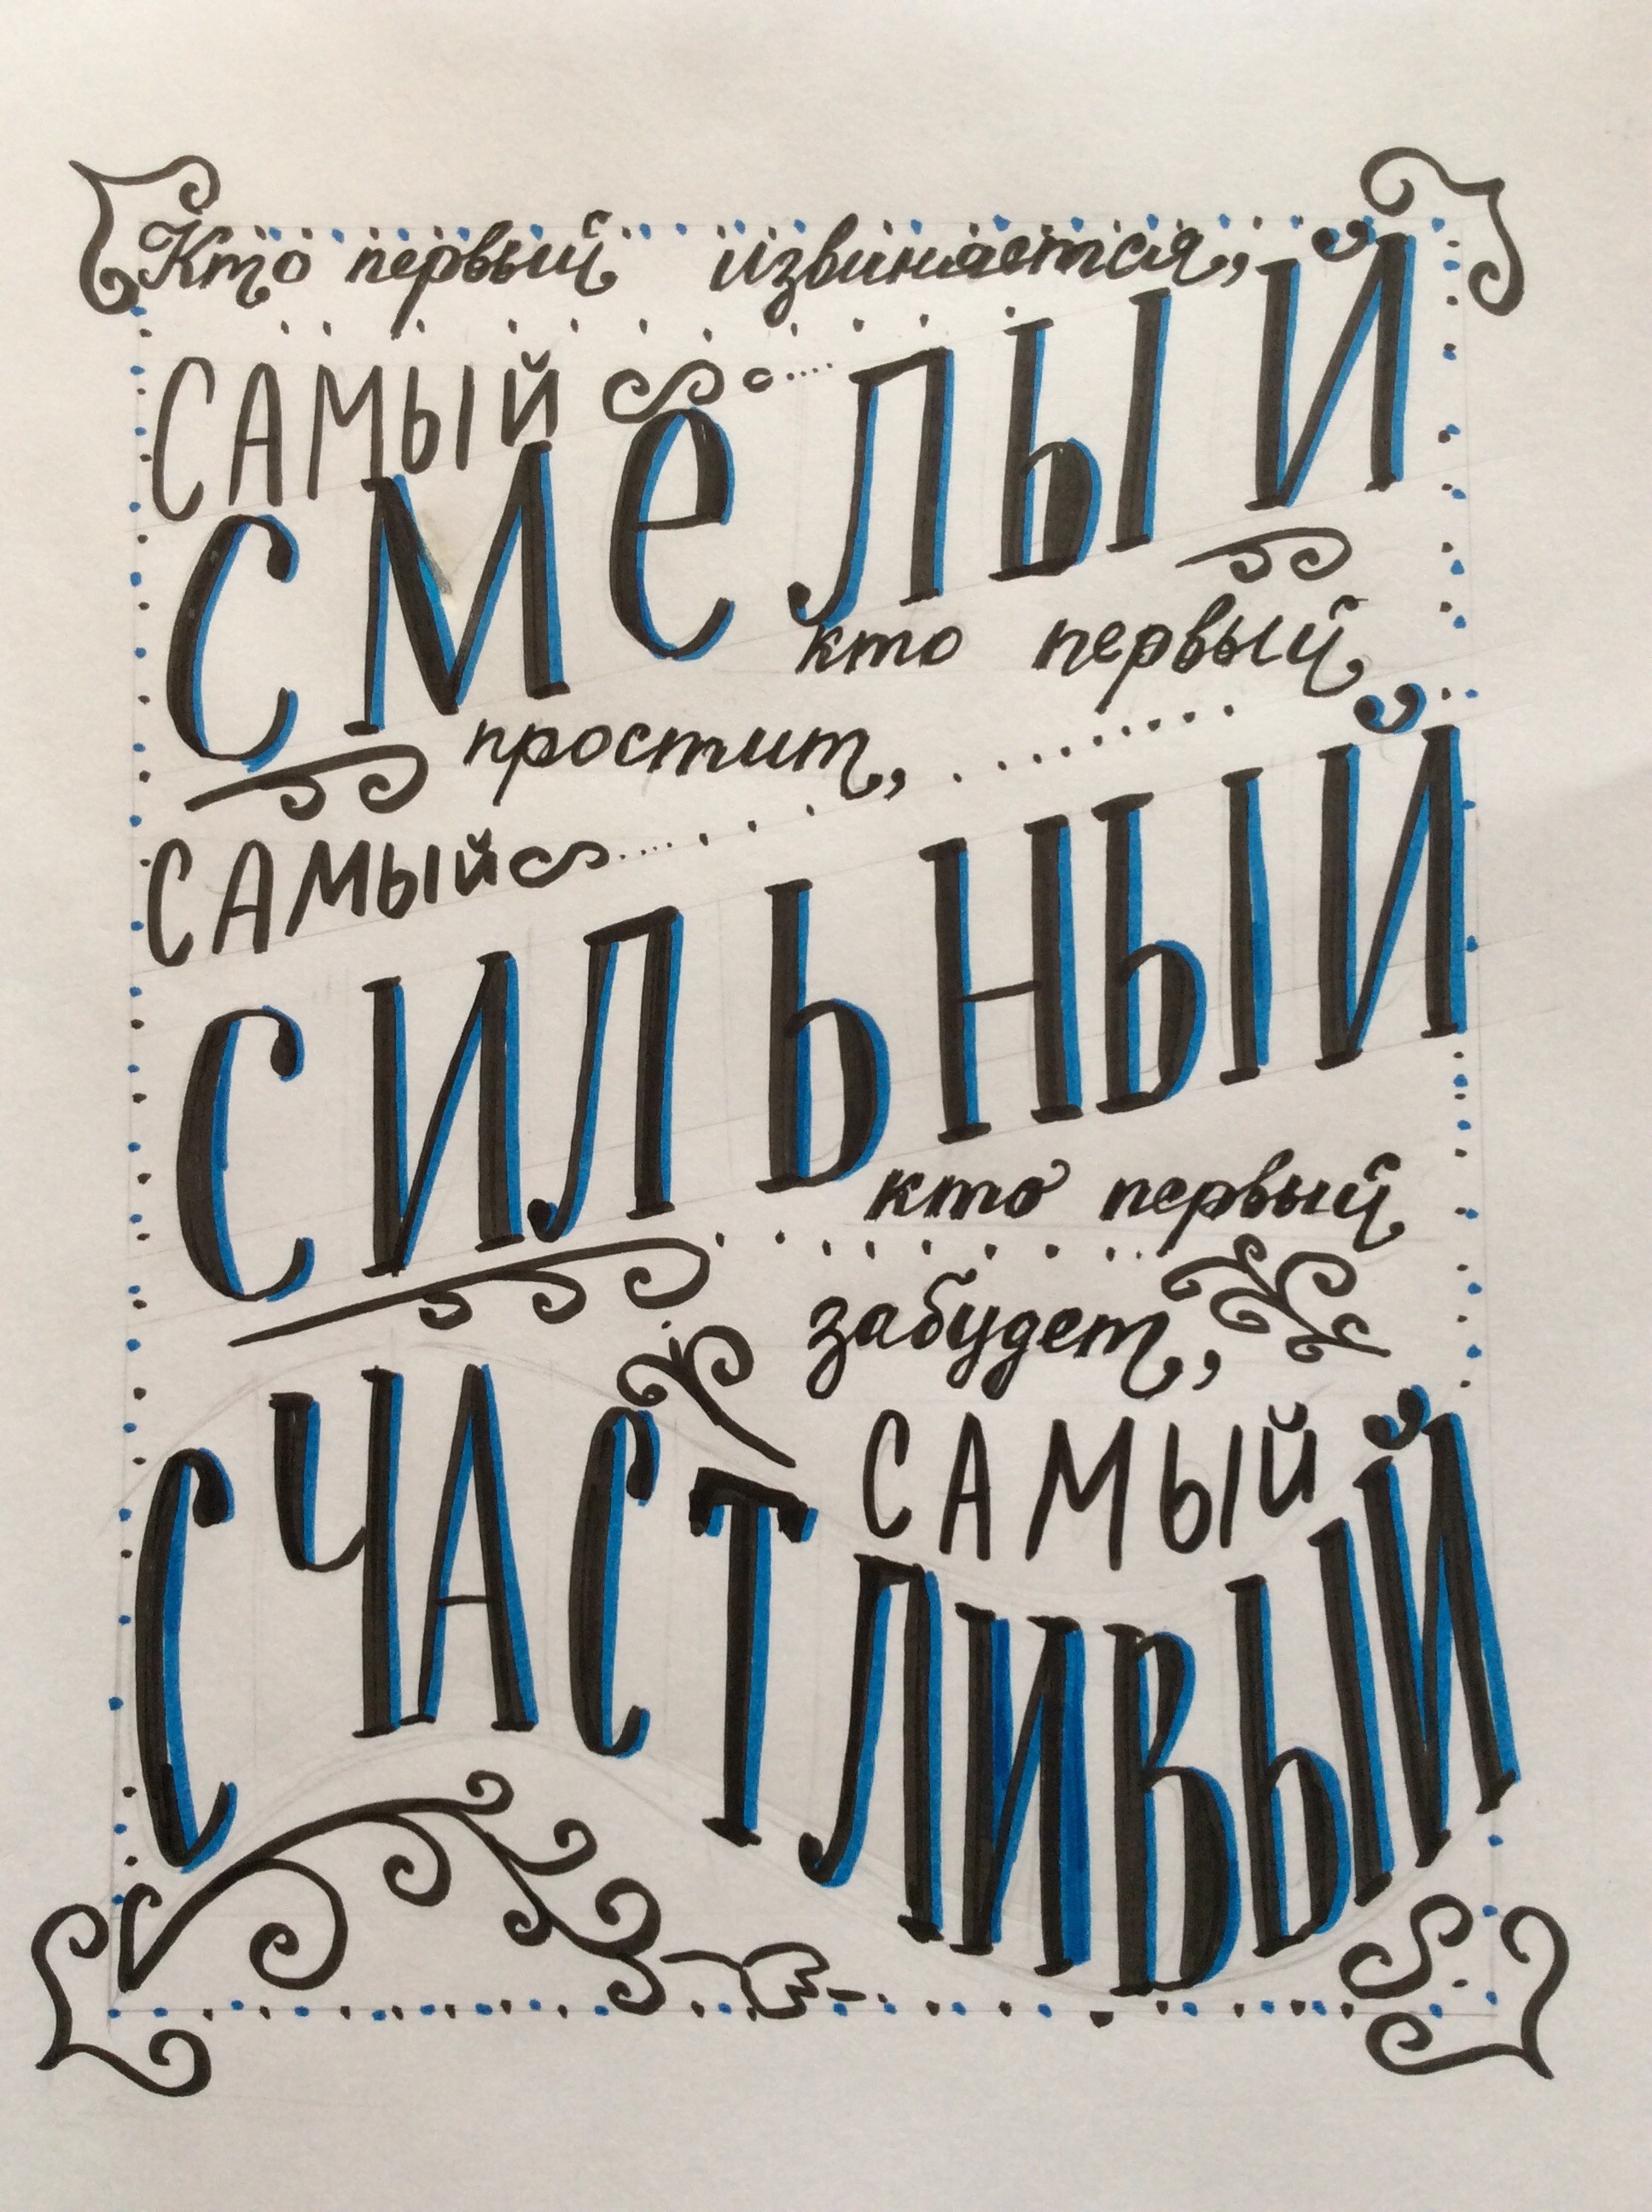 Кто первый извиняется,
САМЫЙ
СМЕЛЫЙ
кто первый
простит,
САМЫЙ
СИЛЬНЫЙ
кто первый
забудет,
САМЫЙ
СЧАСТЛИВЫЙ